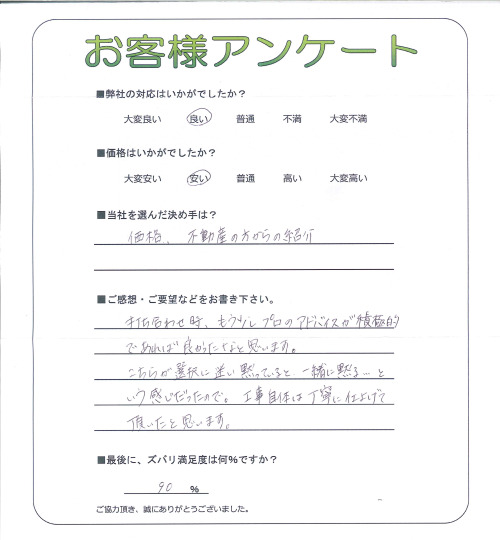 お客様アンケート
■弊社の対応はいかがでしたか？
大変良い 良い 普通 不満 大変不満
■価格はいかがでしたか？
大変安い 安い 普通 高い 大変高い
■当社を選んだ決め手は？
価格、不動産の方からの紹介
■ご感想・ご要望などをお書き下さい。
打ち合わせ時、もう少しプロのアドバイスが積極的
であれば良かったなと思います。
こちらが選択に迷い黙っていると一緒に黙る…と
いう感じだったので。工事自体は丁寧に仕上げて
頂いたと思います。
■最後に、ズバリ満足度は何%ですか？
90 %
ご協力頂き、誠にありがとうございました。